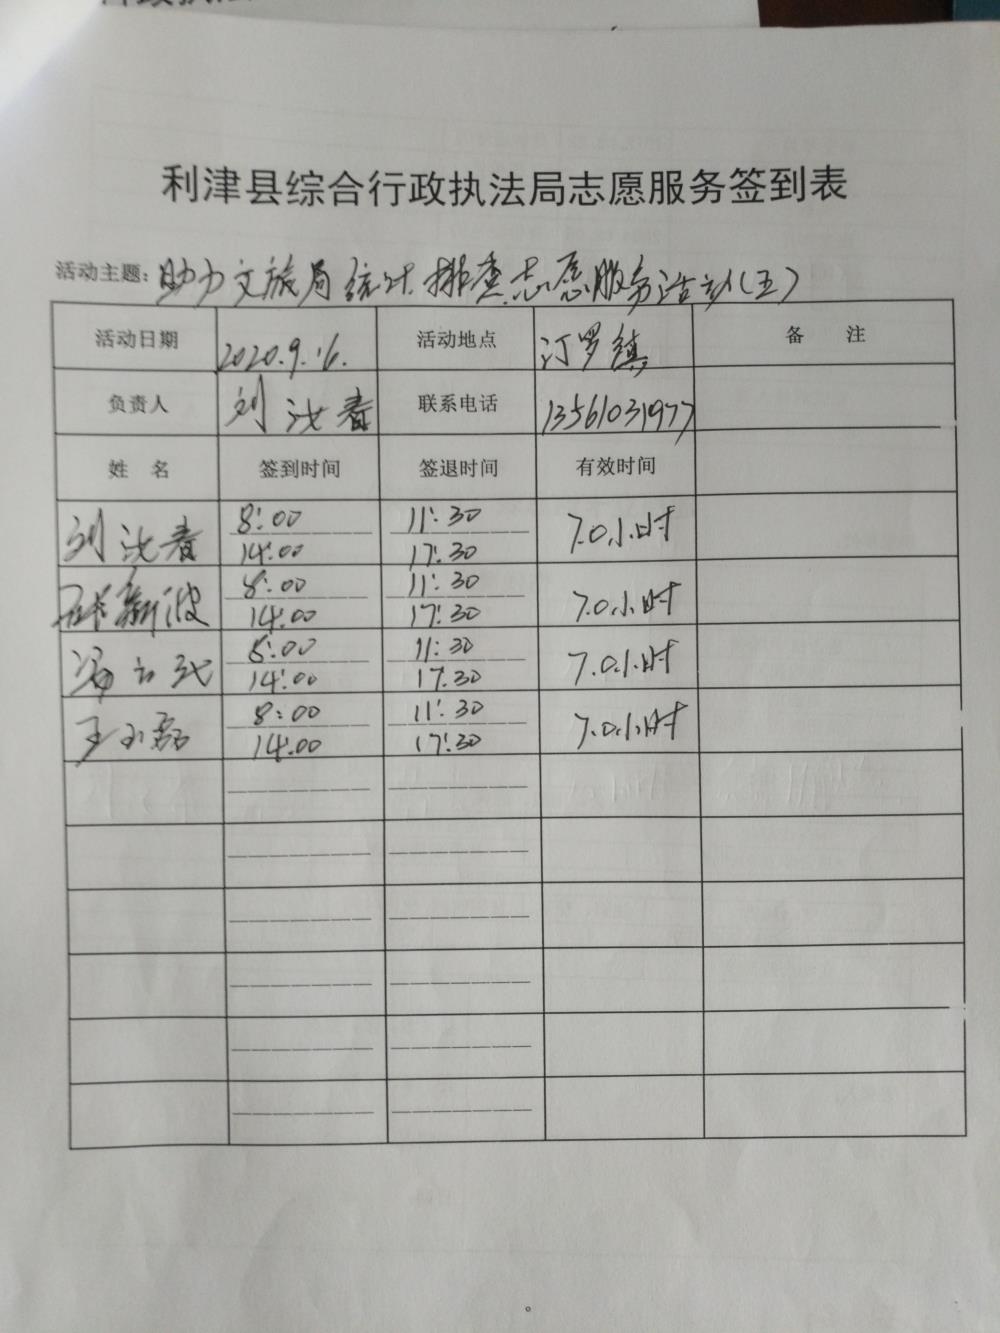 利津县综合行政执法局志愿服务签到表
活动主题：助力文旅局统计排查志愿服务活动(五)
活动日期 2020.9.16. 活动地点 汀罗镇 备 注
负责人 刘 春 联系电话 13561031977
姓 名 签到时间 签退时间 有效时间
刘 春 8:00 11:30 7.0小时
14:00 17:30
新波 8:00 11:30 7.0小时
14:00 17:30
8:00 11:30 7.0小时
14:00 17.30
王小磊 8:00 11:30 7.0小时
14:00 17:30